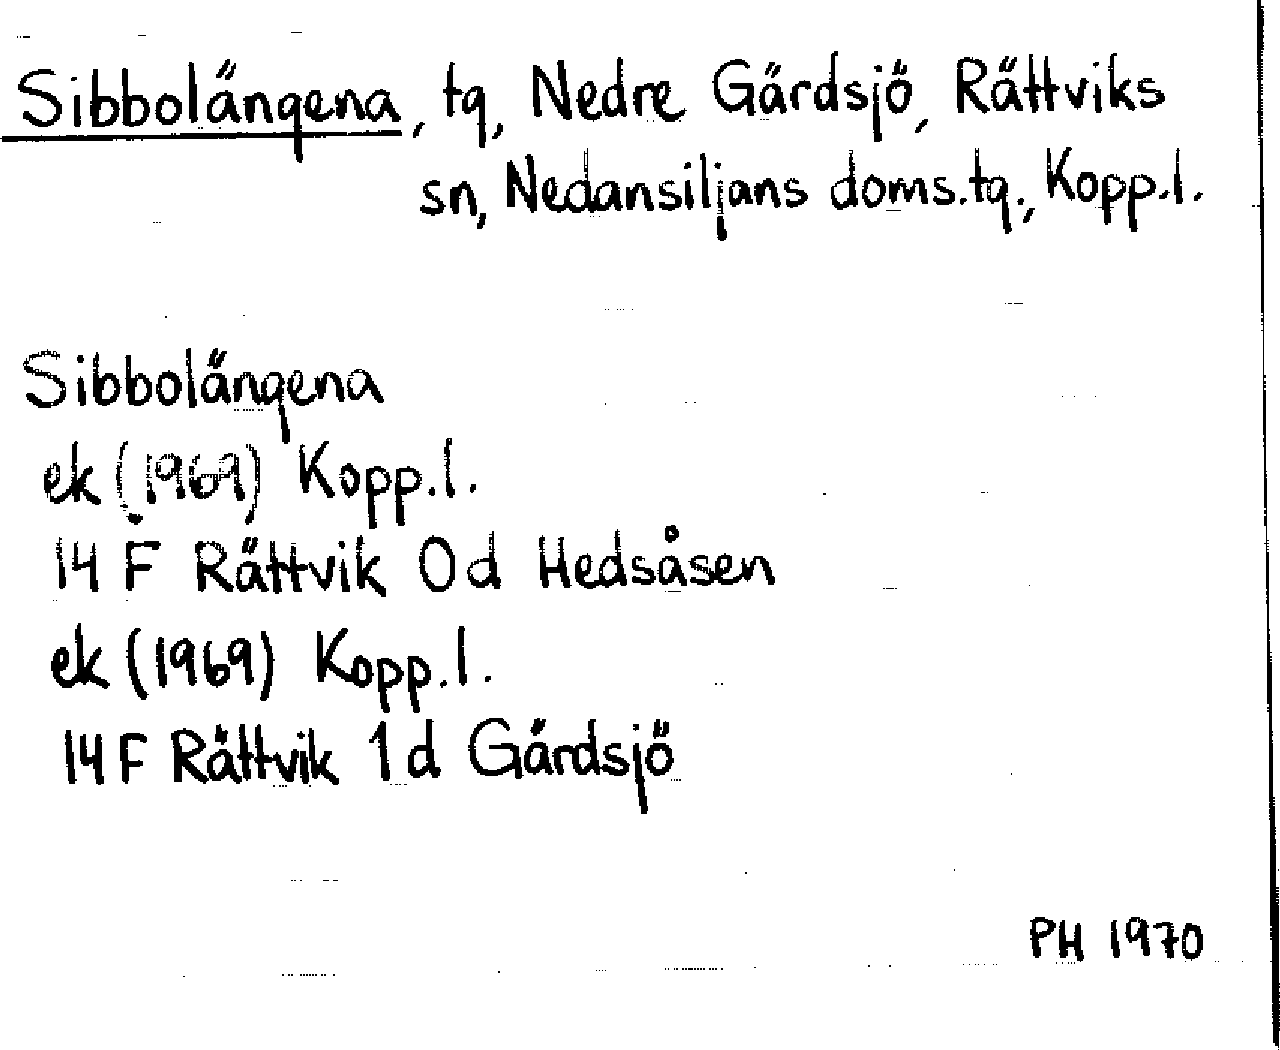 Sibbolängena, tg, Nedre Gärdsjö, Rättviks
sn, Nedansiljans doms.tg., Kopp.l.
Sibbolängena
ek (1969) Kopp.l.
14 F Rättvik 0d Hedsåsen
ek (1969) Kopp.l.
14 F Rättvik 1d Gärdsjö
PH 1970